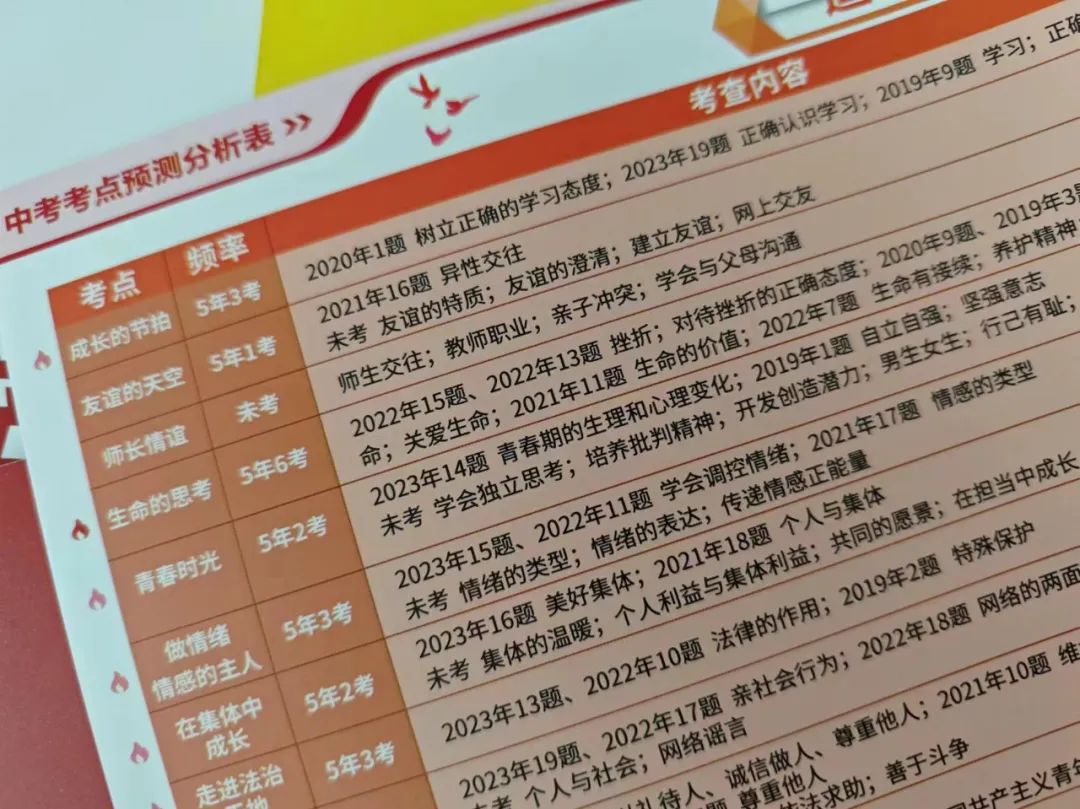 中考考点预测分析表
考点 频率 考查内容
成长的节拍 5年3考 2020年1题 树立正确的学习态度；2023年19题 正确认识学习；2019年9题 学习；正确
友谊的天空 5年1考 2021年16题 异性交往
未考 友谊的特质；友谊的澄清；建立友谊；网上交友
师长情谊 未考 师生交往；教师职业；亲子冲突；学会与父母沟通
生命的思考 5年6考 2022年15题、2022年13题 挫折；对待挫折的正确态度；2020年9题、2019年3题
命；关爱生命；2021年11题 生命的价值；2022年7题 生命有接续；养护精神
青春时光 5年2考 2023年14题 青春期的生理和心理变化；2019年1题 自立自强；坚强意志
未考 学会独立思考；培养批判精神；开发创造潜力；男生女生；行己有耻；
做情绪
情感的主人 5年3考 2023年15题、2022年11题 学会调控情绪；2021年17题 情感的类型
未考 情绪的类型；情绪的表达；传递情感正能量
在集体中
成长 5年2考 2023年16题 美好集体；2021年18题 个人与集体
未考 集体的温暖；个人利益与集体利益；共同的愿景；在担当中成长
走进法治
5年3考 2023年13题、2022年10题 法律的作用；2019年2题 特殊保护
2023年19题、2022年17题 亲社会行为；2022年18题 网络的两面
未考 个人与社会；网络谣言
礼待人、诚信做人、尊重他人；2021年10题 维
题 尊重他人
法求助；善于斗争
共产主义青年